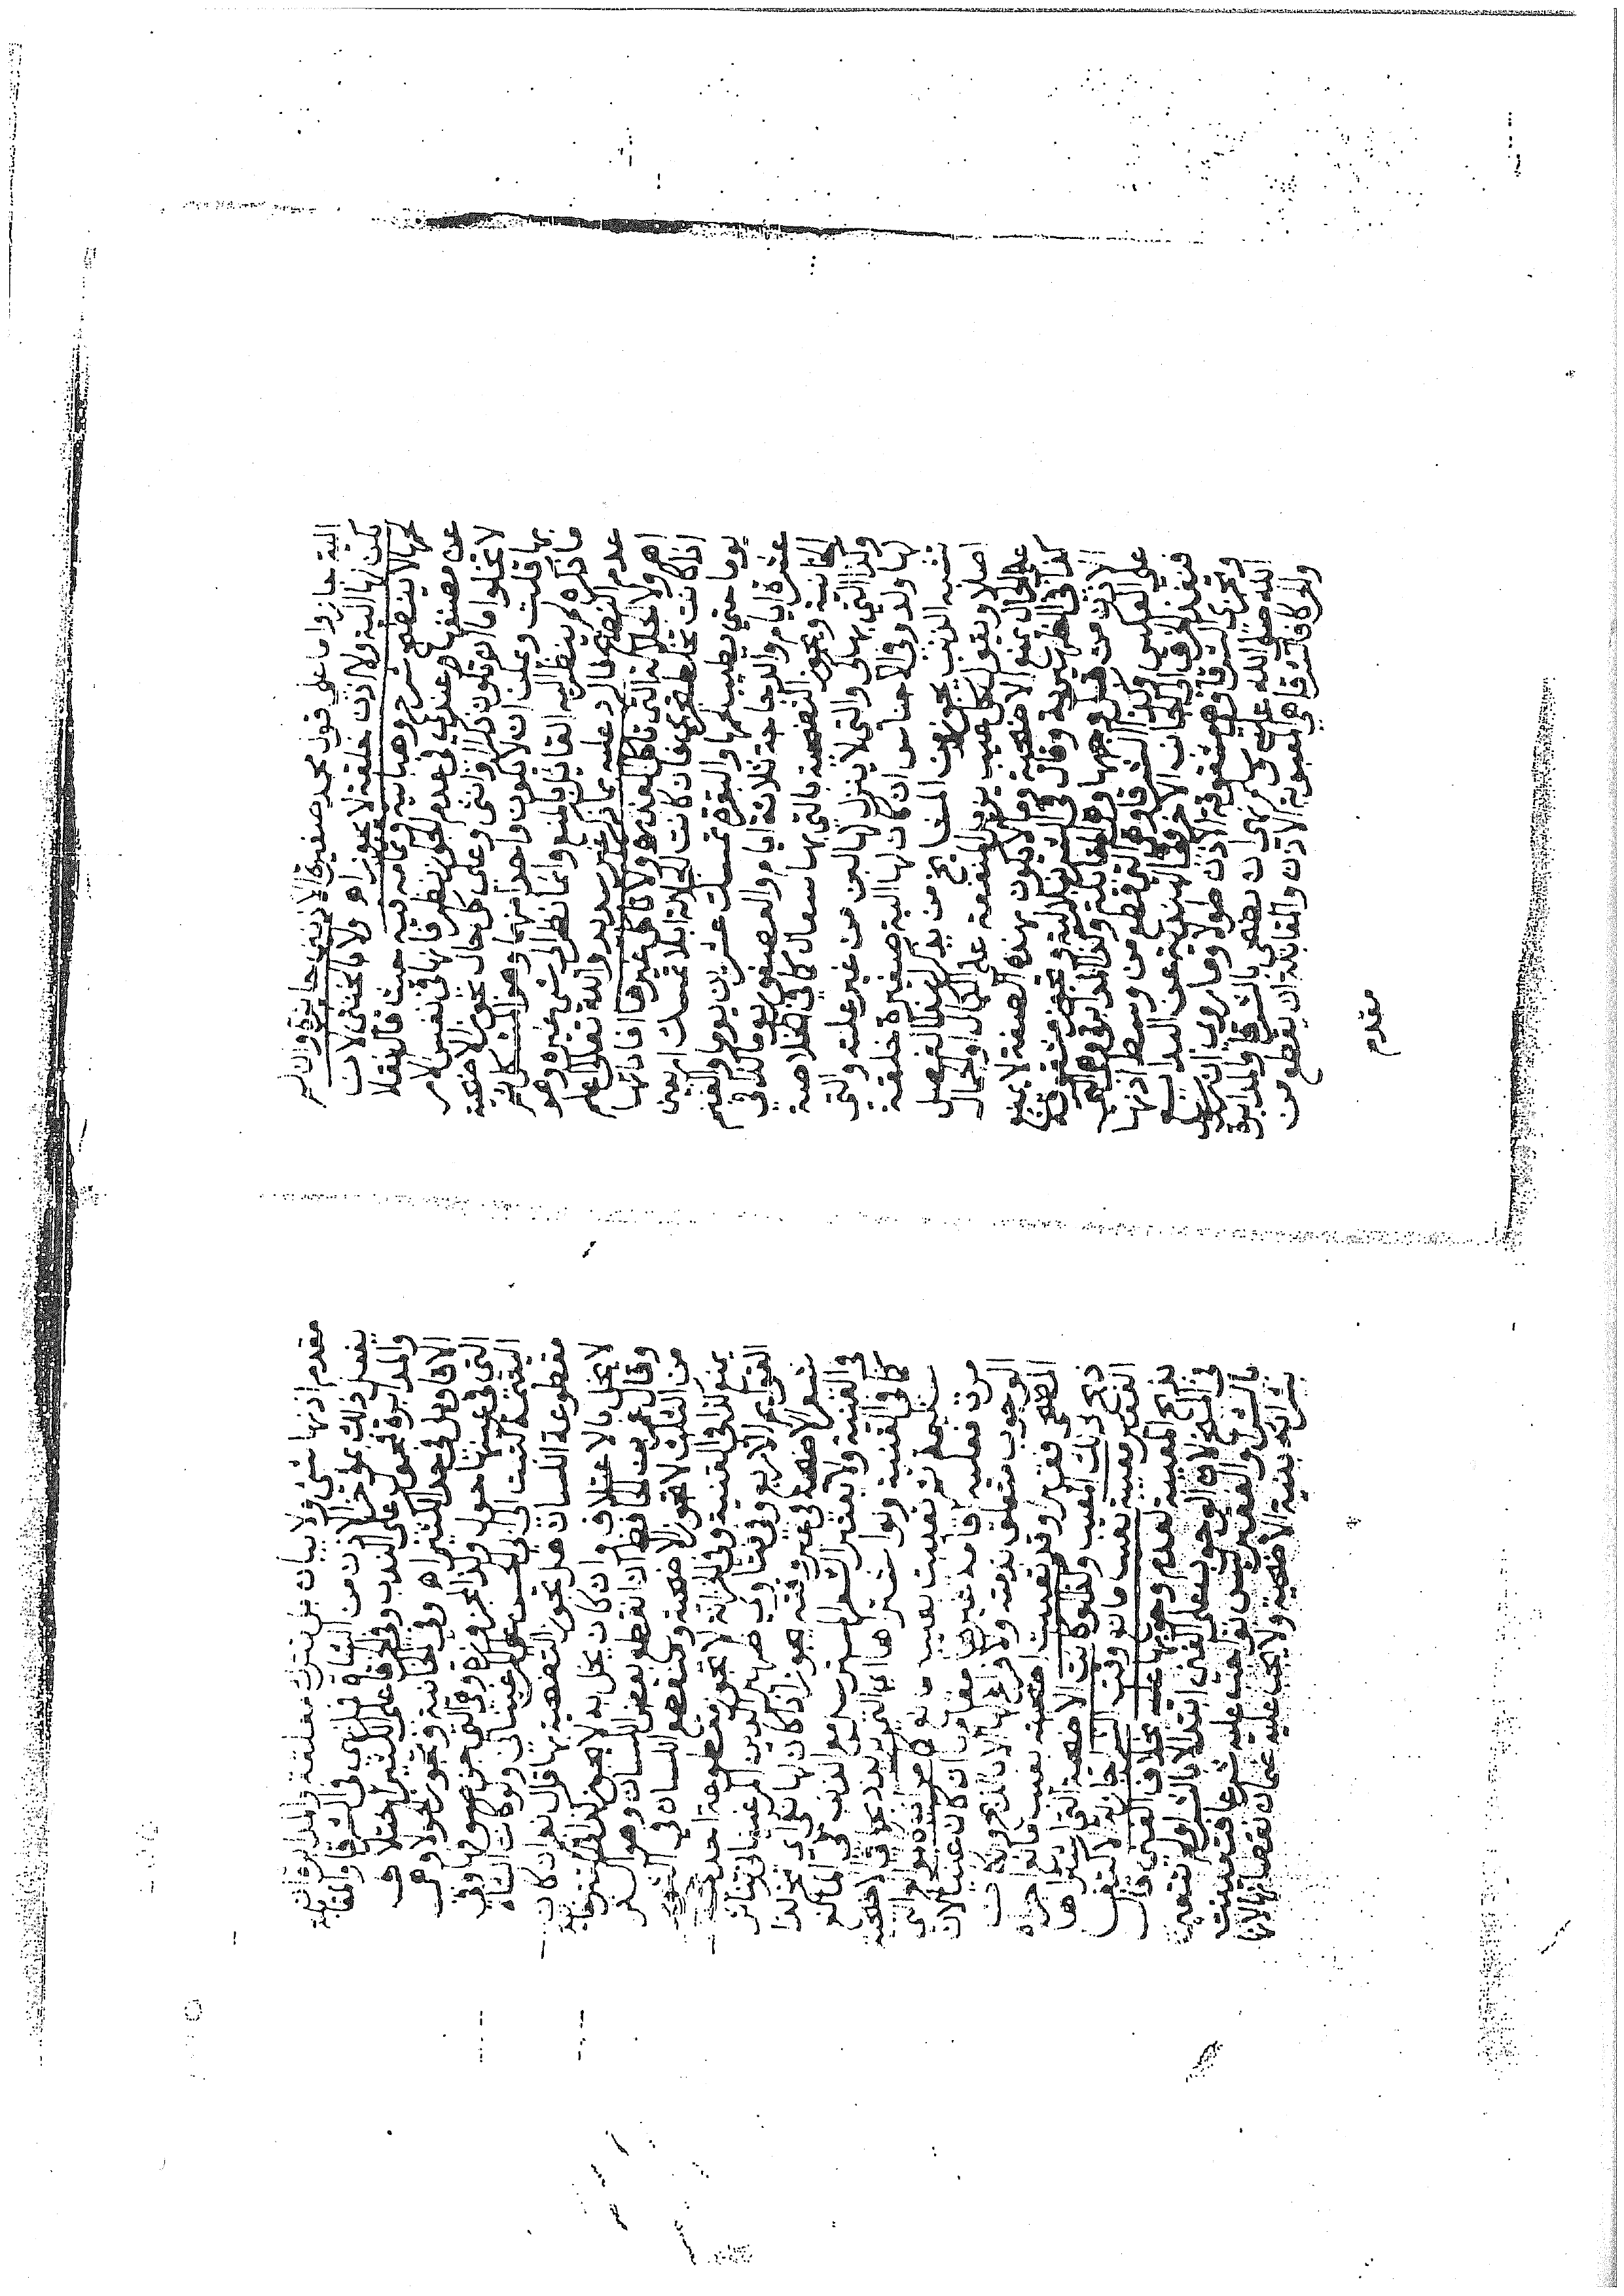 الية جاز واما على قول محمد صغيرة الاذنين جايزة وان لم
يكن لها الية ولا اذن خلقة لا يجوز اه ولا بالخنثى لان
لحمها لا ينضج شرح وهبانية وتمامه فيه حيث قال نقلا
عن مصنفها وعندي في عدم الجواز نظر فانها في نفس الامر
لا تخلوا اما ان تكون ذكرا او انثى وعلى كل حال تجوز الاضحية
بها قلت ويمكن ان لا يكون واحدا منهما وهو المشكل ثم
ما ذكره لم ينظر اليه القايل بالمنع وانما نظر الى شئ غيره وهو
عدم النضج فالرد عليه بما ذكر غير سديد والله تعالى اعلم
اه ولا الجلالة التي تاكل العذرة ولا تاكل غيرها افاد انها
اذا كانت تخلط تجزي فان كانت الجلالة ابلا تمسك اربعين
يوما حتى يطيب لحمها والبقر تمسك عشرين يوما والغنم
عشرة ايام والدجاجة ثلاثة ايام والعصفور يوما كذا في
الخانية ويجوز التضحية بالتي بها سعال كما في الخلاصة
وكذا التي بها كي والتي لا ينزل لها لبن من غير علة والتي
لها ولد وفي الاجناس ان كان لها الية صغيرة خلقة
تشبه الذنب يجوز ومن المشايخ من يذكر لهذا الفصل
اصلا ويقول كل عيب يزيل المنفعة على الكمال او الجمال
على الكمال يمنع الاضحية وما لا يكون بهذه الصفة لا يمنع
كذا في الظهيرية وقال في الشرنبلالية وتجزي مشقوقة
الاذن من قبل وجهها وهي المقابلة وكذا المدابرة وهي
على العكس وكذا الشرقا وهي التي قطع من وسط اذنها
فنفذ الخرق الى الجانب الاخر وفي الهندية عن البدايع
وتجزي الشرقا وهي مشقوقة الاذن طولا وما روي ان رسول
الله صلى الله عليه وسلم نهى ان يضحى بالشرقا والمدابرة
والخرقا فالشرقا هي المعيوبة الاذن والمقابلة ان يقطع من
مقدم
مقدم اذنها شئ ولا يبان بل يترك معلقة والمدابرة ان
يفعل ذلك بمؤخر الاذن من الشاة فنهى في الشرقا والمقابلة
والمدابرة محمول على الندب وفي الخرقا على الكثير اختلاف
الاقاويل في حد الكثير اه وفي الخانية وتجوز الحولا وهي
التي في عينها حول وكذا المجزوزة وهي التي جز صوفها وفي
اليتيمة كتبت الى ابي الحسن علي المرغيناني ولو كانت الشاة
مقطوعة اللسان هل تجوز التضحية بها قال نعم ان كان
لا يخل بالاعتلاف وان كان يخل به لا يجوز كذا في التترخانية
وقال عمر بن الحافظ ان انقطع بعض اللسان وهو اكثر
من الثلث لا تجوز الاضحية وقطع اللسان في الثور
يمنع كذا في القنية وفي الخزانة لا تجوز مقطوعة احدى
القوايم الاربع وفي فتاوى ظهير الدين المرغيناني تناثر
شعر الاضحية في غير وقته يجوز اذا كان لها نقي اي مخ كذا
في القنية ولا يعتبر الشعر المسترسل مع الذنب في المانع
كما في القنية ولو اشتراها اي التي يريد في الاضحية
سليمة ثم تعيبت بعيب مانع كما مر
مرت فعليه اقامة غيرها مقامها ان كان غنيا لان
الوجوب متعلق بذمته ولا فراغ الا بالمجزي وان كانت
المضحي فقير وقد تعيبت اضحيته بعيب مانع اجزاه
ذبح ذلك المعيب وكذا لو كانت الاضحية التي اشتراها
الفقير معيبة بعيب مانع وقت الشرا
تذبح المعيبة لعدم وجوبها عليه بخلاف الغني قال
في المنح لان الوجوب على الغني ابتدا لا بالشرا فلم تتعين
بالشرا والفقير ليس بواجب عليه شرعا فتعينت
بشرائه بنية الاضحية ولا يجب عليه ضمان نقصانها لانها